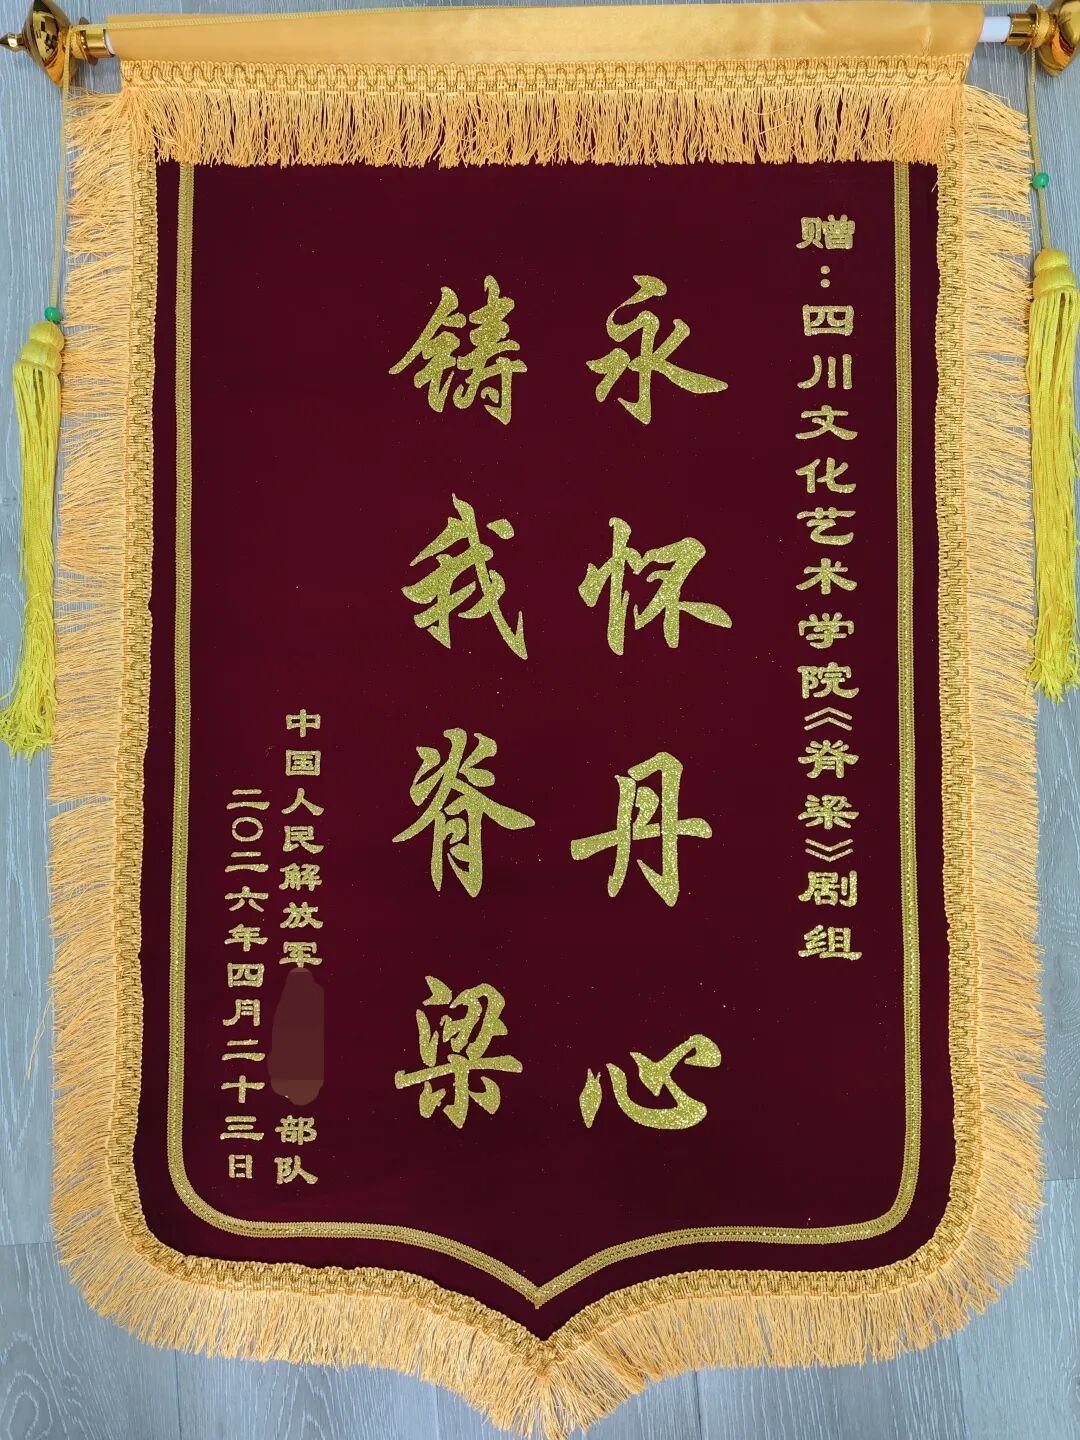 赠：四川文化艺术学院《脊梁》剧组
永怀丹心
铸我脊梁
中国人民解放军 部队
二〇二六年四月二十三日